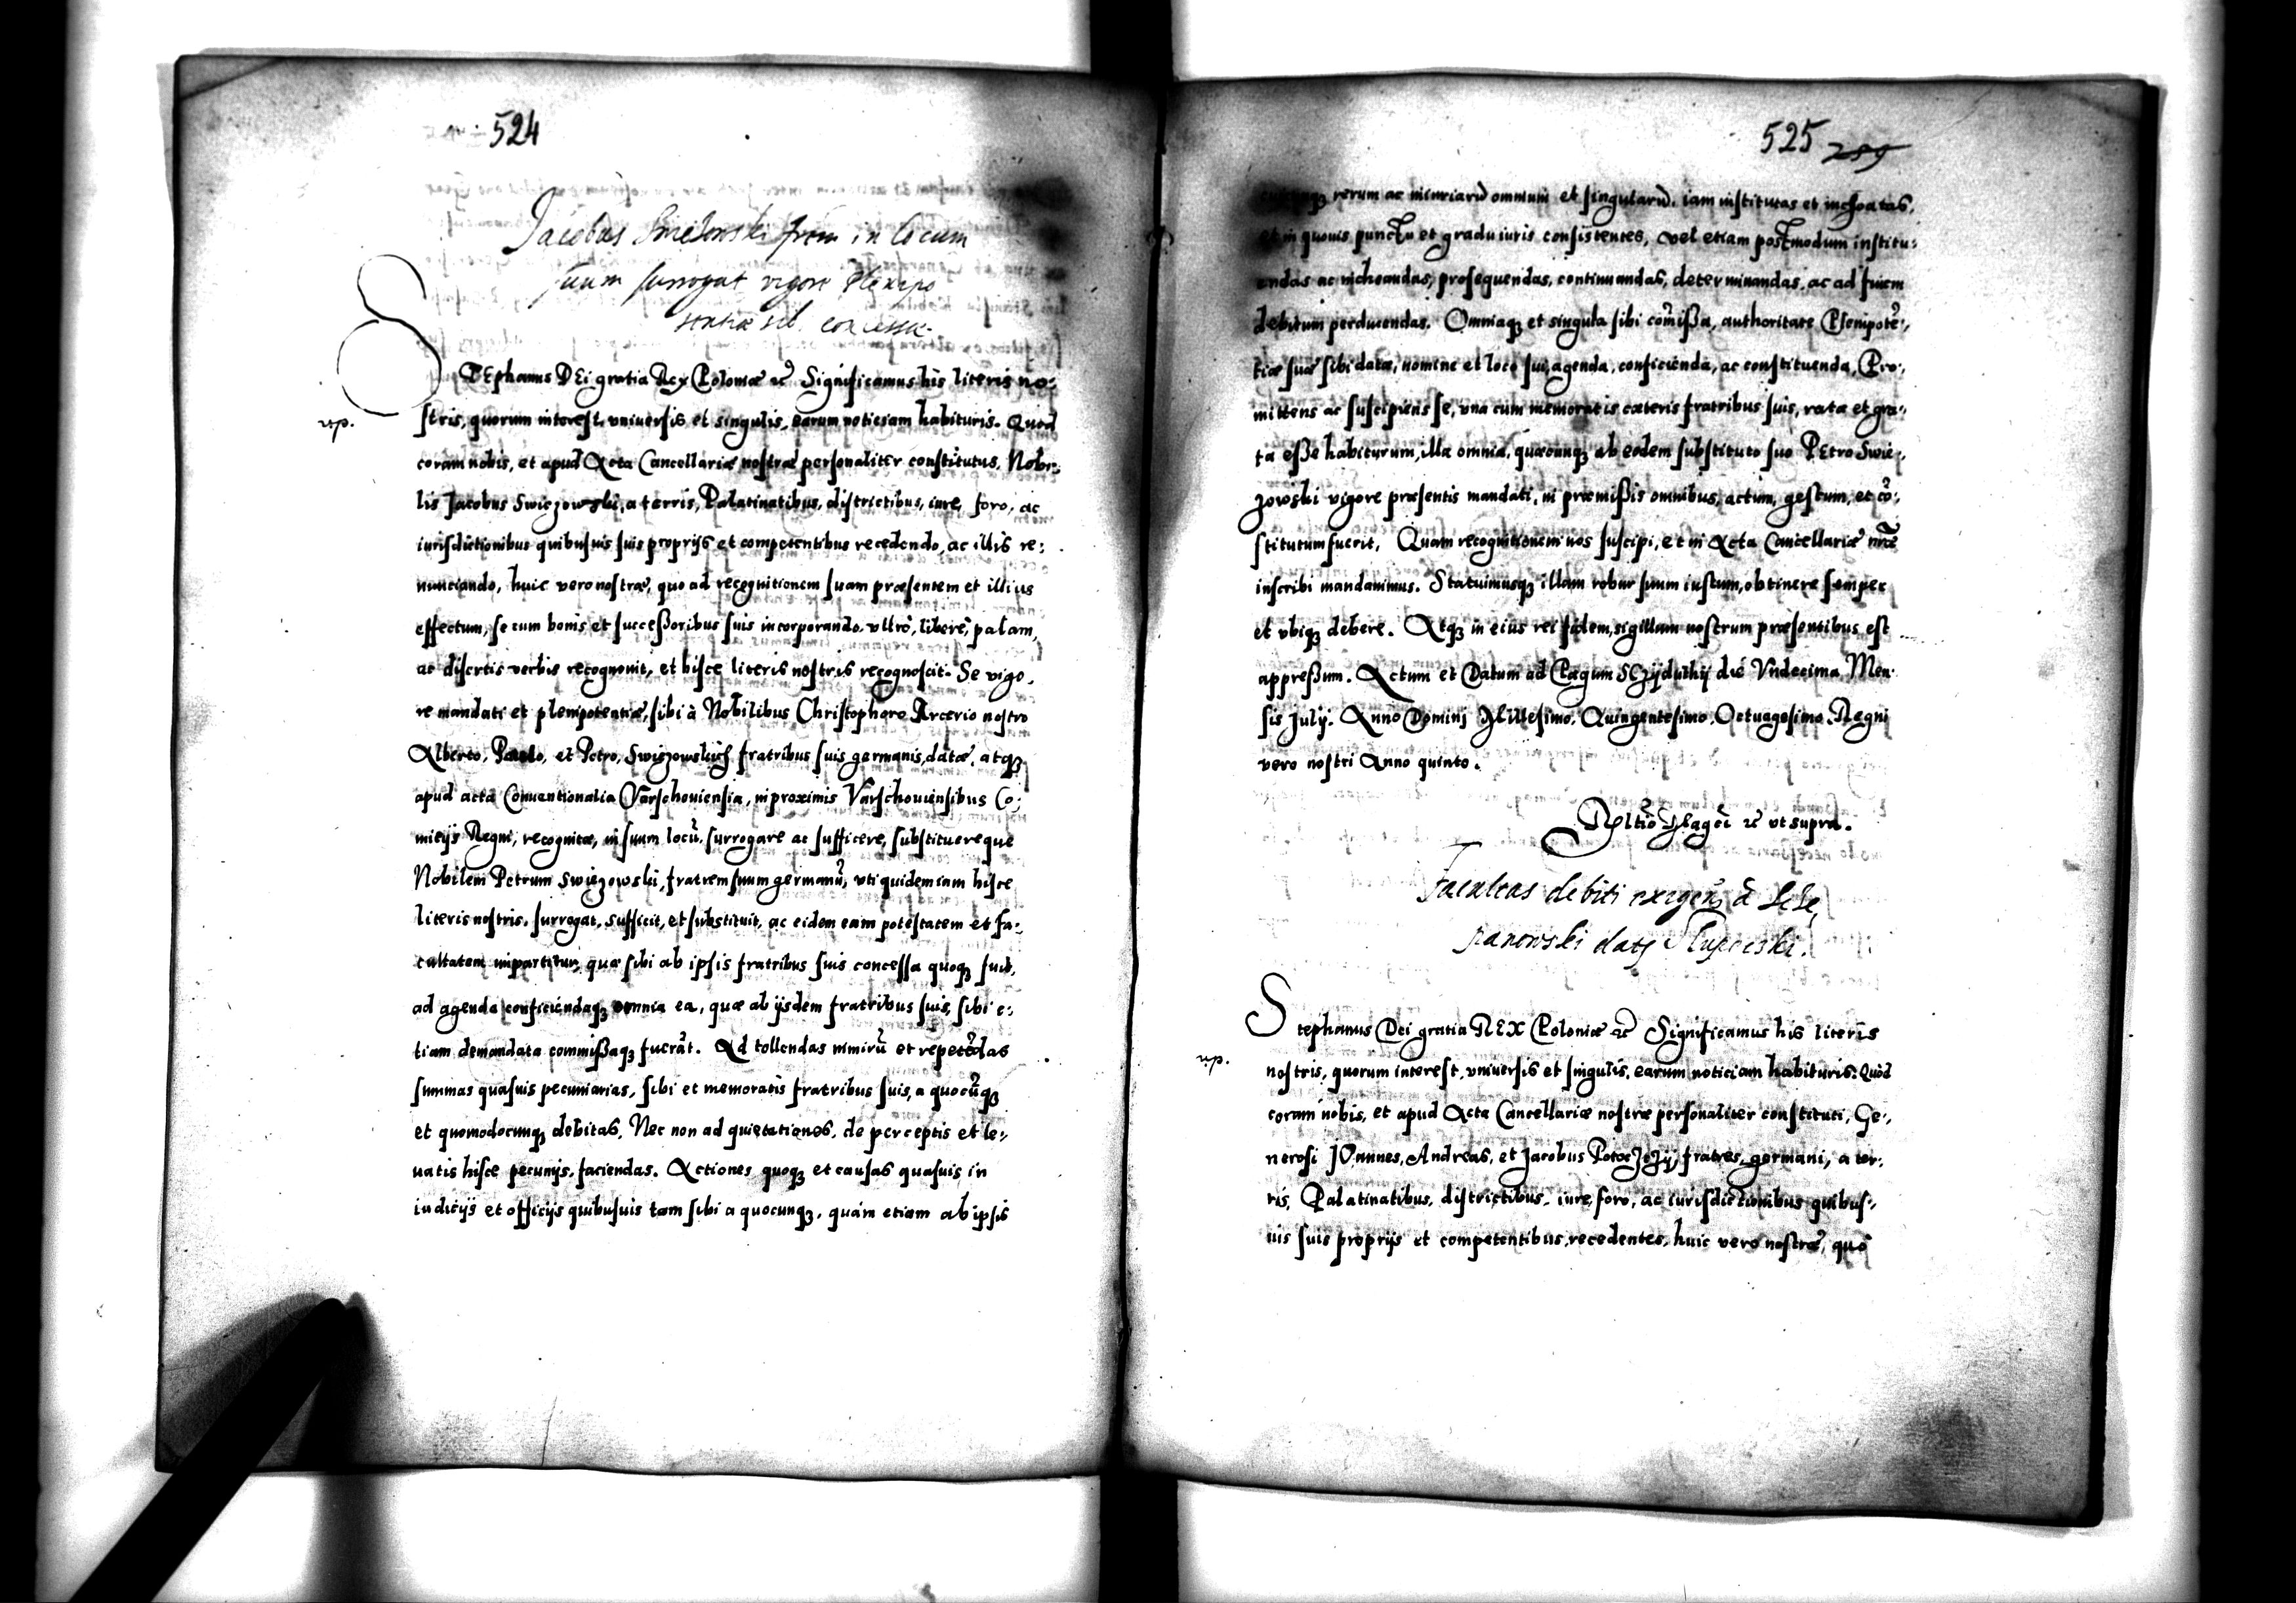 524
Jacobus Swiezowski frem in locum
suum surrogat vigore Plenipo
tentiae sibi concessae.
STEphanus DEi gratia Rex Poloniæ etc Significamus his literis no-
rip.
stris, quorum interest, vniuersis et singulis, earum noticiam habituris. Quod
coram nobis, et apud Acta Cancellariæ nostræ personaliter constitutus, Nobi-
lis Jacobus Swiezowski, a terris, Palatinatibus, districtibus, iure, foro, ac
iurisdictionibus quibusuis suis proprijs et competentibus recedendo, ac illis re-
nunciando, huic vero nostræ, quo ad recognitionem suam præsentem et illius
effectum, se cum bonis et successoribus suis incorporando, vltro, libere, palam,
ac disertis verbis recognouit, et hisce literis nostris recognoscit. Se vigo,
re mandati et plenipotentiæ, sibi à Nobilibus Christophoro Arcerio nostro
Alberto, Paulo, et Petro, Swiezowskich fratribus suis germanis, datæ, atqꝫ
apud acta Conuentionalia Varschouiensia, in proximis Varschouiensibus Co-
mitijs Regni, recognitæ, in suum locũ, surrogare ac sufficere, substituereque
Nobilem Petrum Swiezowski, fratrem suum germanũ, vti quidem iam hisce
literis nostris, surrogat, sufficit, et substituit, ac eidem eam potestatem et fa-
cultatem impartitur, quæ sibi ab ipsis fratribus suis concessa quoqꝫ fuit,
ad agenda conficiendaqꝫ omnia ea, quæ ab ijsdem fratribus suis, sibi e-
tiam demandata commissaqꝫ fuerãt. Ad tollendas nimirũ et repetẽdas
summas quasuis pecuniarias, sibi et memoratis fratribus suis, a quocũqꝫ
et quomodocunqꝫ debitas, Nec non ad quietationes, de perceptis et le-
uatis hisce pecunijs, faciendas. Actiones quoqꝫ et causas quasuis in
iudicijs et officijs quibusuis tam sibi a quocunqꝫ, quàm etiam ab ipsis
525 259
rerum ac iniuriarũ omnium et singularũ, iam institutas et inchoatas,
et in quouis punctu et gradu iuris consistentes, vel etiam postmodum institu-
endas ac inchoandas, prosequendas, continuandas, determinandas, ac ad finem
debitum perducendas. Omniaqꝫ et singula sibi com̃issa, authoritate Plenipotẽ-
tiæ suæ sibi datæ, nomine et loco sui, agenda, conficienda, ac constituenda, Pro-
mittens ac suscipiens se, vna cum memoratis cæteris fratribus suis, rata et gra-
ta esse habiturum, illa omnia, quæcunqꝫ ab eodem substituto suo Petro Swie-
zowski vigore præsentis mandati, in præmissis omnibus, actum, gestum, et cõ-
stitutum fuerit, Quam recognitionem nos suscipi, et in Acta Cancellariæ nr̃æ
inscribi mandauimus. Statuimusqꝫ illam robur suum iustum, obtinere semper
et vbiqꝫ debere. Atqꝫ in eius rei fidem, sigillum nostrum præsentibus est
appressum. Actum et Datum ad Pagum die Vndecima Men-
sis Julij. Anno Dominj Millesimo, Quingentesimo, Octuagesimo, Regni
vero nostri Anno quinto.
Rltĩo Magci etc vt supra.
Facultas debiti à
datj
Stephanus Dei gratia REX Poloniæ etc Significamus his literis
rip.
nostris, quorum interest, vniuersis et singulis, earum noticiam habituris. Quòd
coram nobis, et apud Acta Cancellariæ nostræ personaliter constituti, Ge-
nerosi JOannes, Andreas, et Jacobus Potoczijj, fratres, germani, a ter-
ris, Palatinatibus, districtibus, iure, foro, ac iurisdictionibus quibus-
uis suis proprijs et competentibus, recedentes, huic vero nostræ, quo